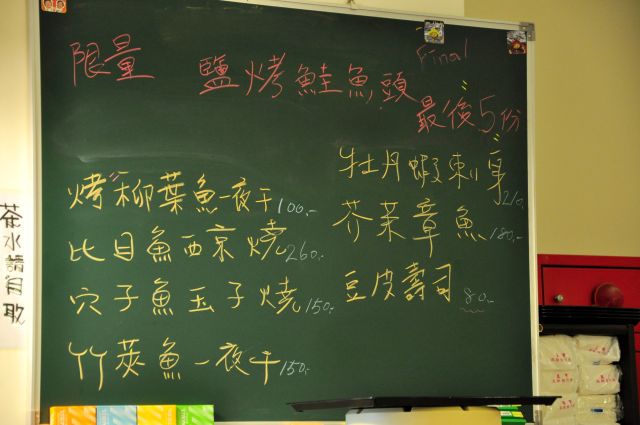 限量 鹽烤鮭魚頭
Final
最後5份
烤柳葉魚一夜干100.-
比目魚西京燒260.-
穴子魚玉子燒150.-
竹莢魚一夜干150.-
牡丹蝦刺身210.-
芥茉章魚180.-
豆皮壽司80.-
茶水請自取